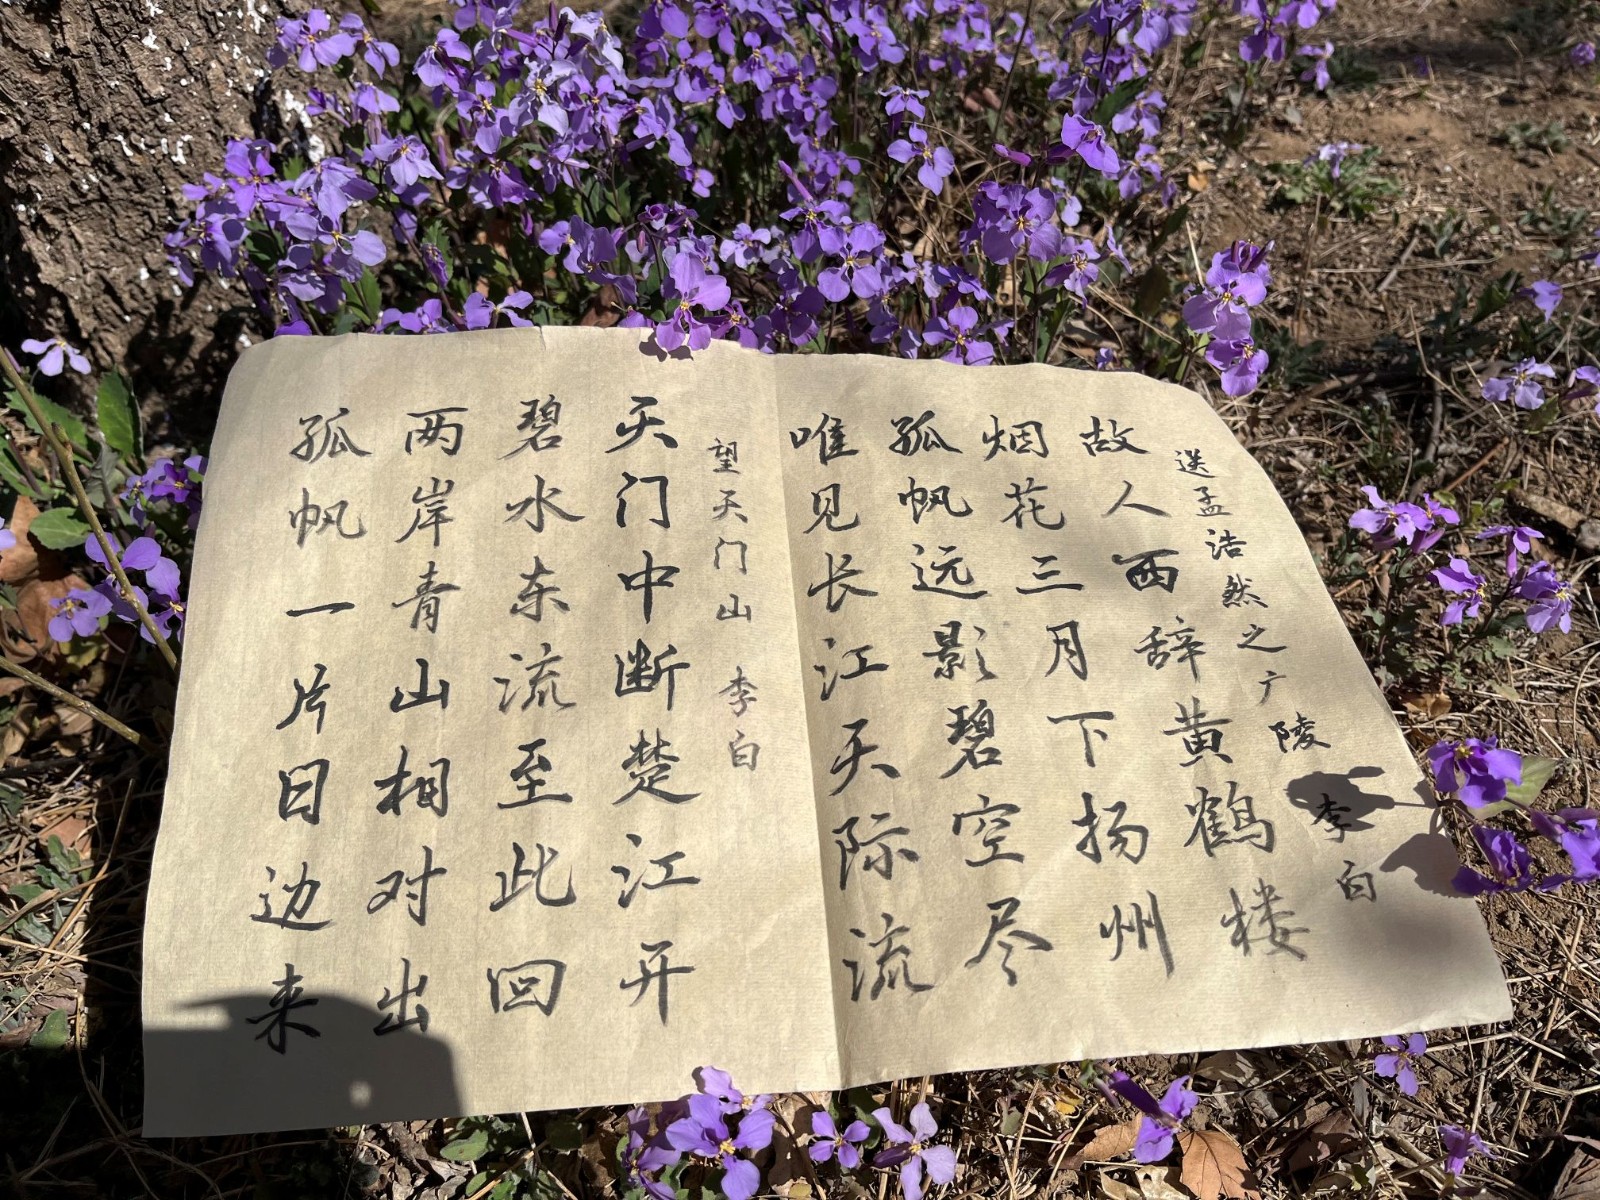 送孟浩然之广陵 李白
故人西辞黄鹤楼
烟花三月下扬州
孤帆远影碧空尽
唯见长江天际流
望天门山 李白
天门中断楚江开
碧水东流至此回
两岸青山相对出
孤帆一片日边来